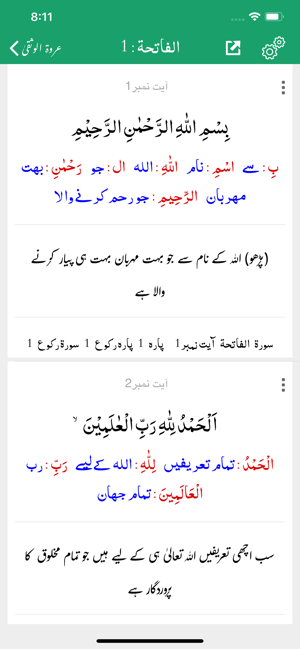 8:11
عروۃ الوثقٰی
الفاتحة : 1
آیت نمبر1
بِسْمِ اللّٰهِ الرَّحْمٰنِ الرَّحِیْمِ
بِ : سے اسْمِ : نام اللّٰهِ : الله ال : جو رَحْمٰنِ : بهت
مهربان الرَّحِیمِ : جو رحم کرنے والا
(پڑھو) اللہ کے نام سے جو بہت مہربان بہت ہی پیار کرنے
والا ہے
سورة الفاتحة آیت نمبر1 پارہ 1 پارہ رکوع 1 سورۃ رکوع 1
آیت نمبر2
اَلْحَمْدُ لِلّٰهِ رَبِّ الْعٰلَمِیْنَ ۙ
الْحَمْدُ : تمام تعریفیں لِلّٰهِ : الله کے لیے رَبِّ : رب
الْعَالَمِينَ : تمام جهان
سب اچھی تعریفیں اللہ تعالیٰ ہی کے لیے ہیں جو تمام مخلوق کا
پروردگار ہے